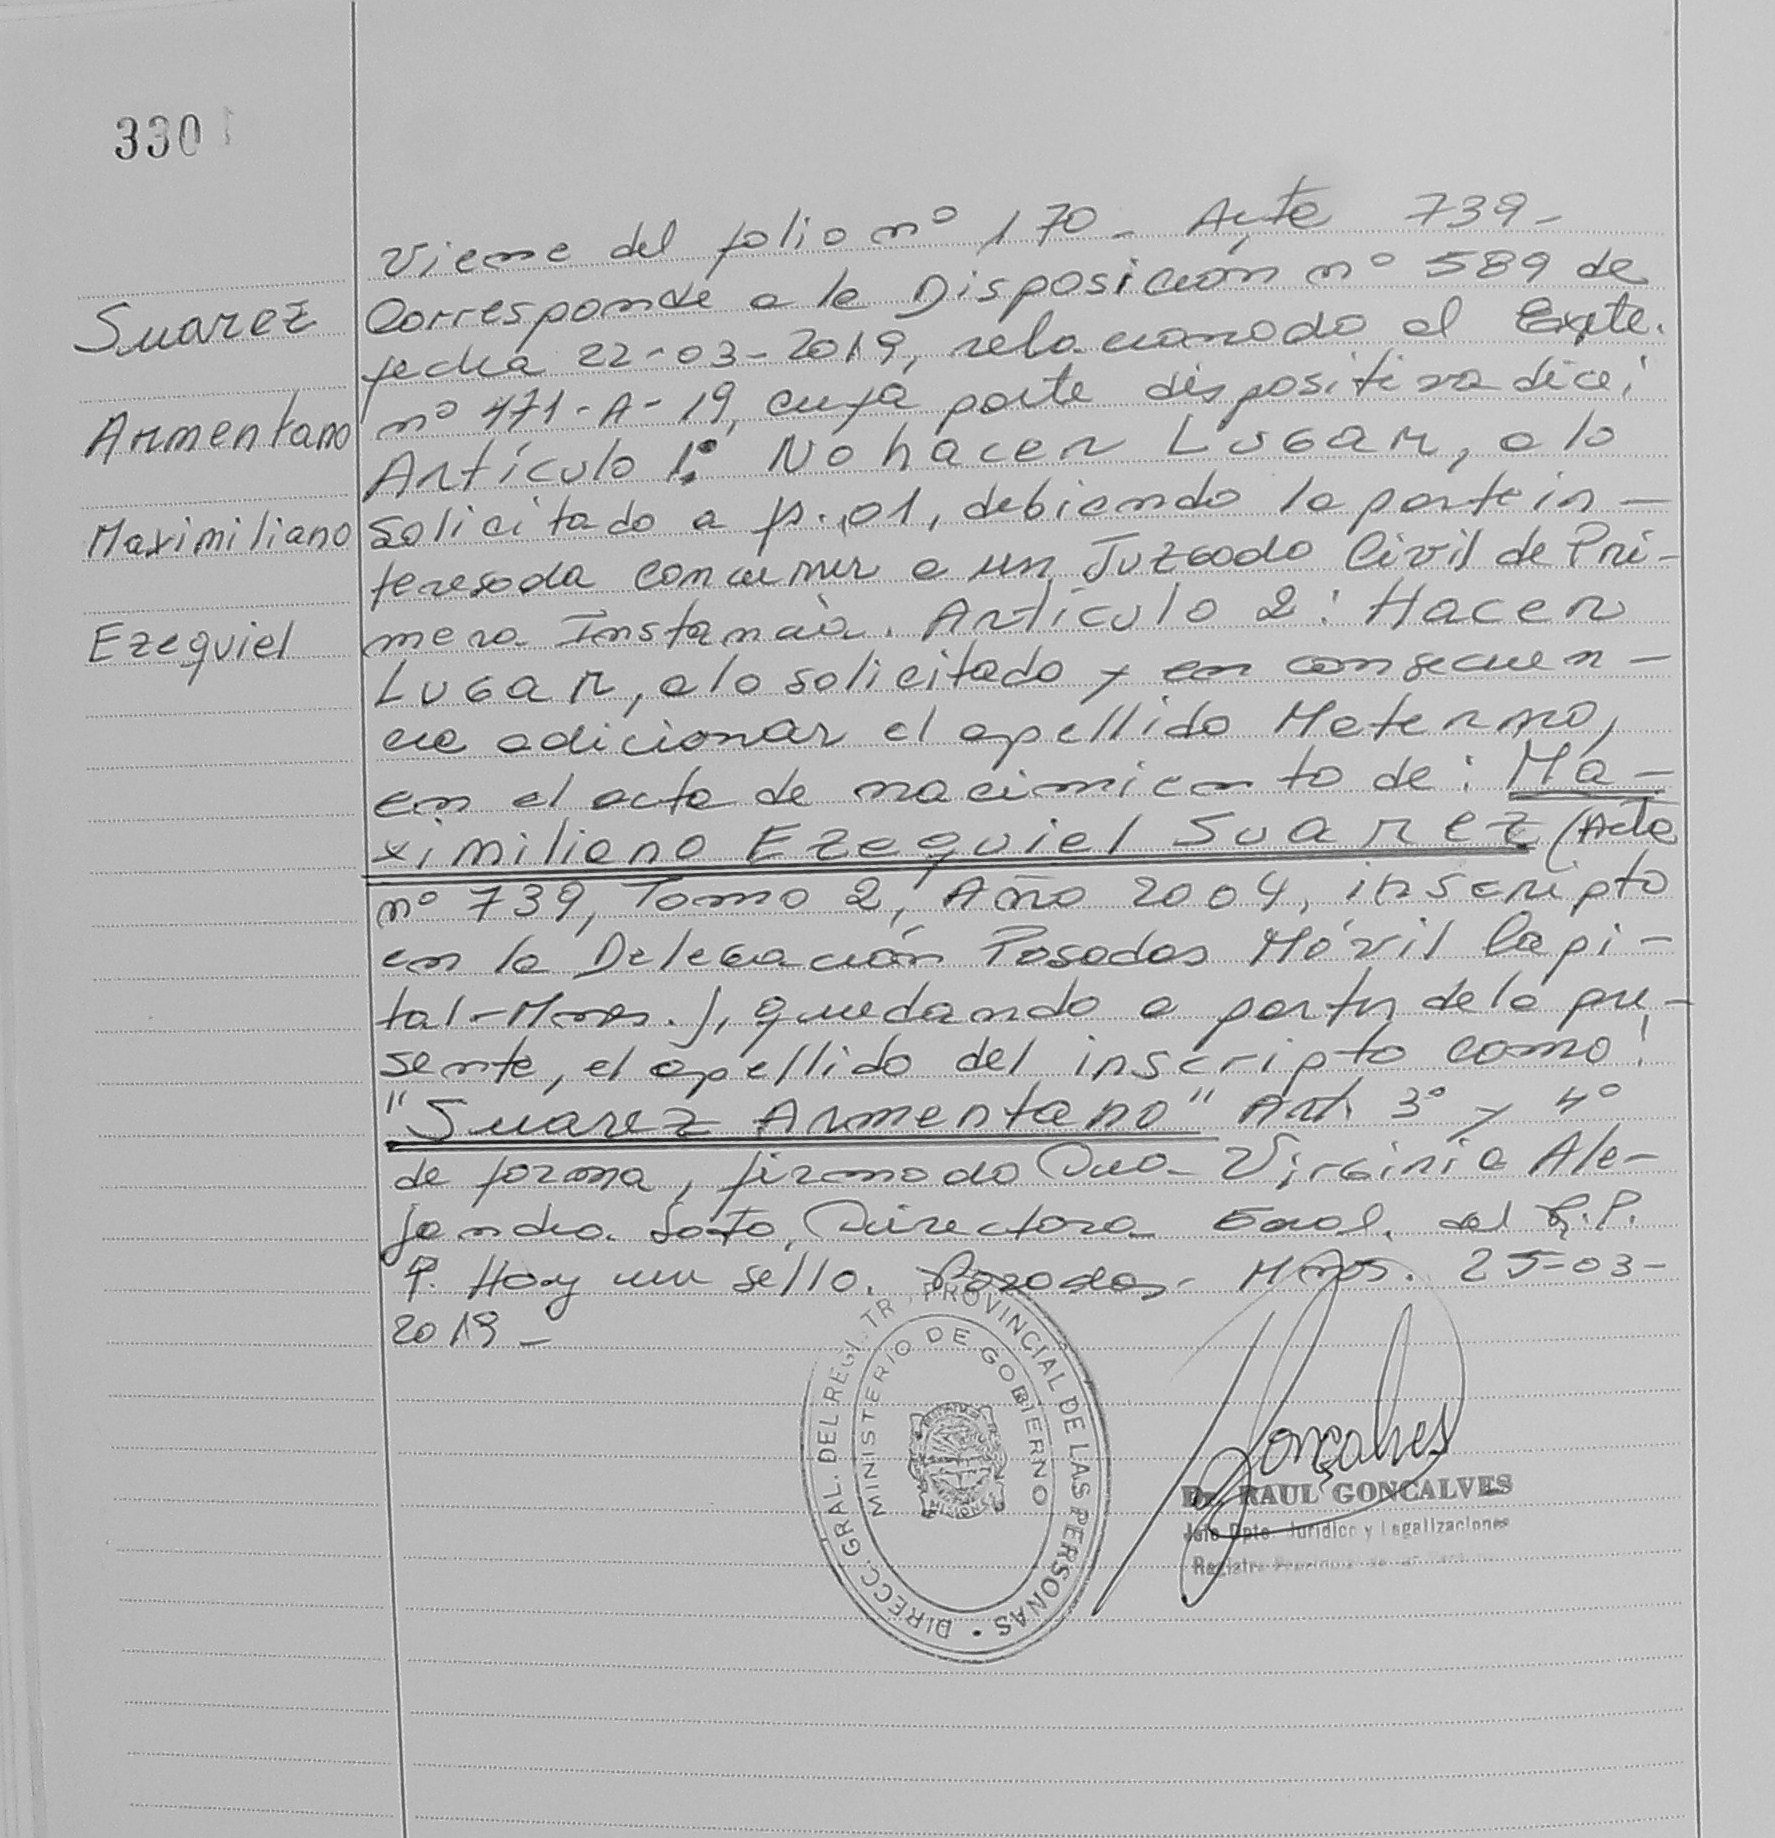 330
Viene del folio nº 170 - Acta 739-
Suarez
Armentano
Maximiliano
Ezequiel
Corresponde a la Disposición nº 589 de
fecha 22-03-2019, relacionado al Expte.
nº 171-A-19, cuya parte dispositiva dice:
Artículo 1º: No hacer Lugar, a lo
solicitado a fs. 01, debiendo la parte in-
teresada concurrir a un Juzgado Civil de Pri-
mera Instancia. Artículo 2: Hacer
Lugar, a lo solicitado y en consecuen-
cia adicionar el apellido Materno,
en el acta de nacimiento de: Ma-
ximiliano Ezequiel Suarez (Acta
nº 739, Tomo 2, Año 2004, inscripto
en la Delegación Posadas Móvil Capi-
tal-Mnes.), quedando a partir de la pre-
sente, el apellido del inscripto como:
"Suarez Armentano" Art. 3º y 4º
de forma, firmado Dra. Virginia Ale-
jandra Soto, Directora Gral. del R.P.
P. Hay un sello. Posadas- Mnes. 25-03-
2019-
DIRECC. GRAL. DEL REGISTR PROVINCIAL DE LAS PERSONAS
MINISTERIO DE GOBIERNO
Gonçalves
Dr. RAUL GONCALVES
Jefe Dpto. Jurídico y Legalizaciones
Registro Provincial de las